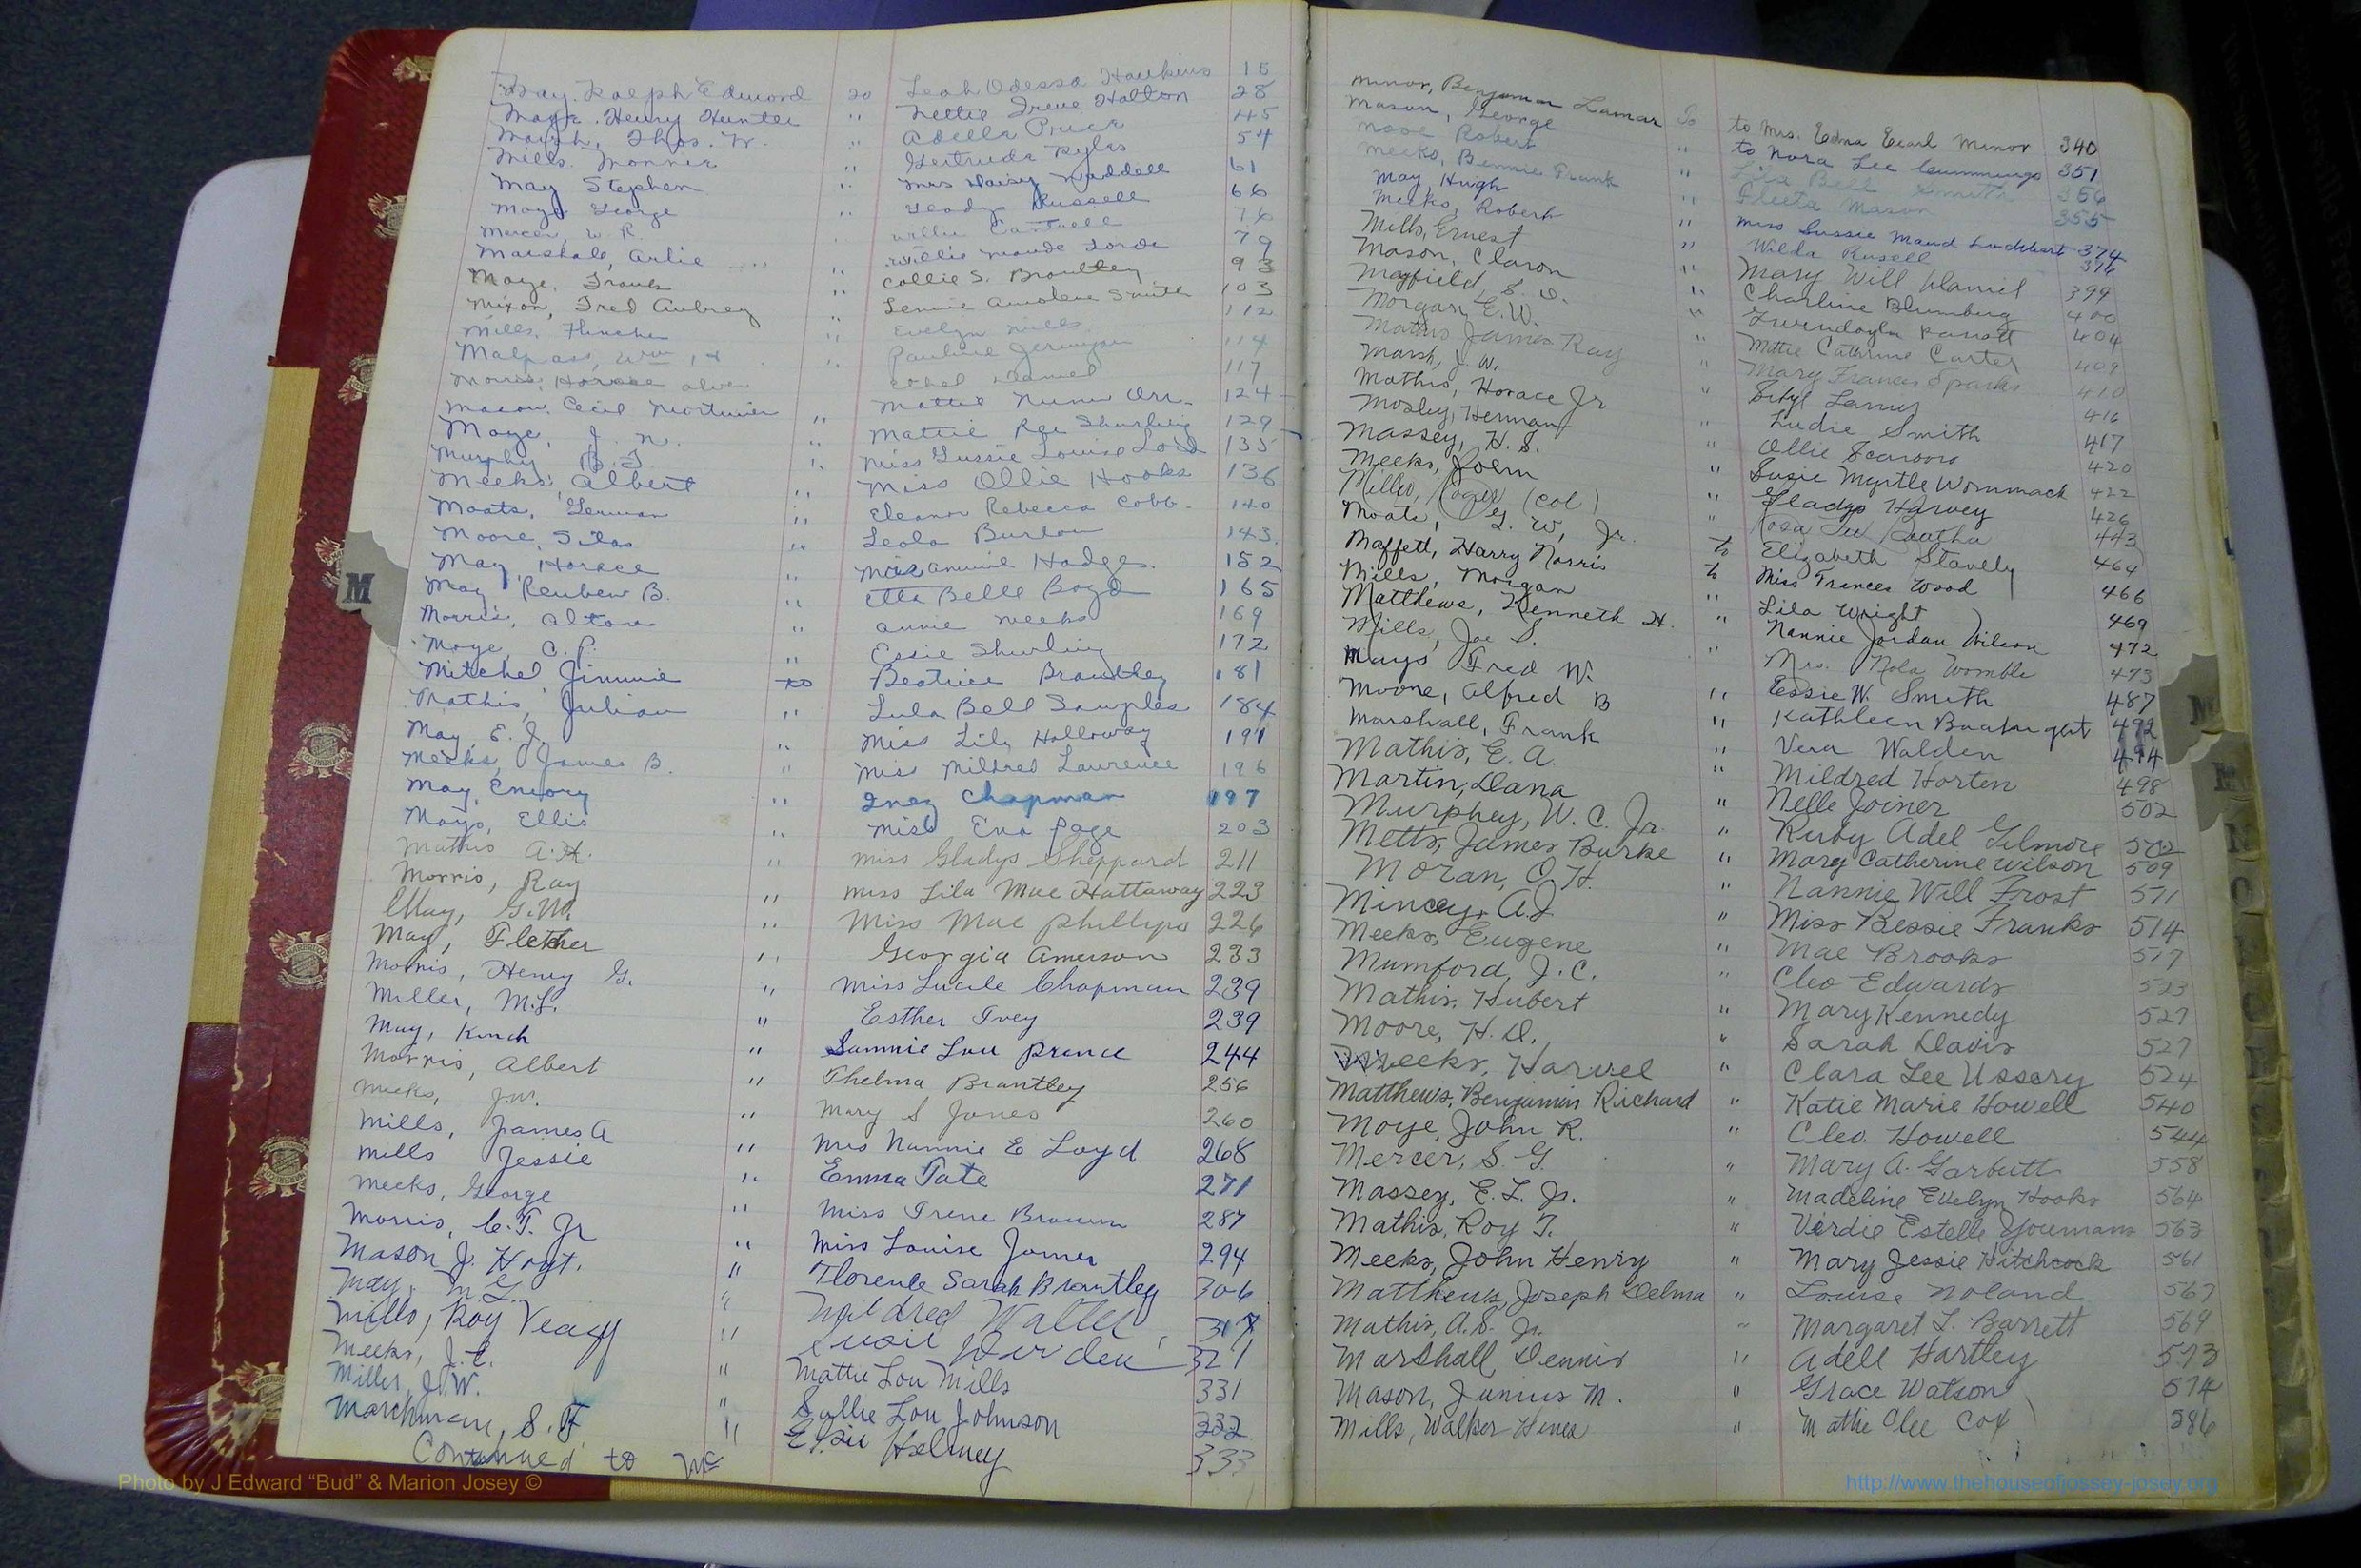 May, Ralph Edward to Leah Odessa Hawkins 15
Moye, Henry Hunter " Nettie Irene Holton 28
Marsh, Thos. W. " Adella Price 45
Mills, " Gertrude Kyles 54
May Stephen " Mrs Daisy Waddell 61
Moye George " Gladys Russell 66
Mercer, W. R. Willie Cantrell 76
Marshall, Arlie " Willie Maude Lord 79
Moye, Frank " Collie S. Brantley 93
Mixon, Fred Aubrey " Smith 103
Mills, " Evelyn Mills 112
Malpass, Wm. H " Pauline 114
Morris, Horace Ethel Daniel 117
Mason, Cecil Mortimer " Mattie 124
Moye, J. N. " Mattie Ree Shurling 129
Murphy B. T. " Miss Gussie Louise Lord 135
Meeks, Albert " Miss Ollie Hooks 136
Moats, Herman " Eleanor Rebecca Cobb 140
Moore, Silas " Leola Burton 143
May, Horace " Miss Annie Hodges 152
May Reuben B. " Etta Belle Boyd 165
Morris, Alton " Annie Meeks 169
Moye, C. P. " Essie Shurling 172
Mitchel Jimmie to Beatrice Brantley 181
Mathis, Julian " Lula Bell Samples 184
May, E. J. " Miss Lily Holloway 191
Meeks, James B. " Miss Mildred Lawrence 196
May, Emory " Inez Chapman 197
Mays, Ellis " Miss Eva Page 203
Mathis A. H. " Miss Gladys Sheppard 211
Morris, Ray " Miss Lila Mae Hattaway 223
May, G. M. " Miss Mae Phillips 226
May, Fletcher " Georgia Amerson 233
Morris, Henry G. " Miss Lucile Chapman 239
Miller, M. L. " Esther Ivey 239
May, Kinch " Sammie Lou Prince 244
Morris, Albert " Thelma Brantley 256
Meeks, J. W. " Mary S Jones 260
Mills, James A " Mrs Nannie E Loyd 268
Mills Jessie " Emma Tate 271
Meeks, George " Miss Irene Brown 287
Morris, C. T. Jr " Miss Louise Joiner 294
Mason J. Hoyt. " Florence Sarah Brantley 306
May, M. L. " Mildred Walter 317
Mills, Roy Veasy " Susie Durden 321
Meeks, J. C. " Mattie Lou Mills 331
Miller, J. W. " Sallie Lou Johnson 332
Marchman, S. F " Elsie Helmey 333
Continued to Mc
Minor, Benjaman Lamar to to Mrs. Edna Earl Minor 340
Mason, George " to Nora Lee Cummings 351
Robert " Lila Bell Smith 356
Meeks, Bennie Frank " Fleeta Mason 355
May, Hugh " Miss Sussie Maud Lockhart 374
Meeks, Robert " Wilda Russell 376
Mills, Ernest " Mary Will Daniel 399
Mason, Claron " Charline Blumberg 400
Mayfield, S. D. " Gwendolyn Parrott 404
Morgan, E. W. " Mittie Cathrine Carter 409
Mathis James Ray " Mary Frances Sparks 410
Marsh, J. W. " Sibyl Lamus 416
Mathis, Horace Jr " Ludie Smith 417
Mosley, Herman " Ollie Scarboro 420
Massey, H. S. " Susie Myrtle Wommack 422
Meeks, John " Gladys Harvey 426
Miller, Roger (Col) " Rosa Lee 443
Moats, G. W, Jr. to Elizabeth Stavely 464
Maffett, Harry Norris to Miss Frances Wood 466
Mills, Morgan " Lila Wright 469
Matthews, Kenneth H. " Nannie Jordan Wilson 472
Mills, Joe S. " Mrs. Nola Womble 473
Mays Fred W. Essie W. Smith 487
Moore, Alfred B " Kathleen 492
Marshall, Frank " Vera Walden 494
Mathis, E. A. " Mildred Horten 498
Martin, Dana " Nelle Joiner 502
Murphey, W. C. Jr. " Ruby Adel Gilmore 502
Metts, James Burke " Mary Catherine Wilson 509
Moran, O. H. " Nannie Will Frost 511
Mincey, A. J. " Miss Bessie Franks 514
Meeks, Eugene " Mae Brooks 517
Mumford, J. C. " Cleo Edwards 523
Mathis, Hubert " Mary Kennedy 527
Moore, H. D. " Sarah Davis 527
Meeks, Harvel " Clara Lee Ussery 524
Matthews, Benjamin Richard " Katie Marie Howell 540
Moye, John R. " Cleo. Howell 544
Mercer, S. G. " Mary A. Garbutt 558
Massey, E. L. Jr. " Madeline Evelyn Hooks 564
Mathis, Roy T. " Virdie Estelle Youmans 563
Meeks, John Henry " Mary Jessie Hitchcock 561
Matthews, Joseph Delma " Louise Noland 567
Mathis, A. S. Jr. " Margaret L. Barrett 569
Marshall Dennis " Adell Hartley 573
Mason, Junius M. " Grace Watson 574
Mills, Walker Hines " Mattie Clee Cox 586
M
M
Photo by J Edward “Bud” & Marion Josey ©
http://www.thehouseofjossey-josey.org